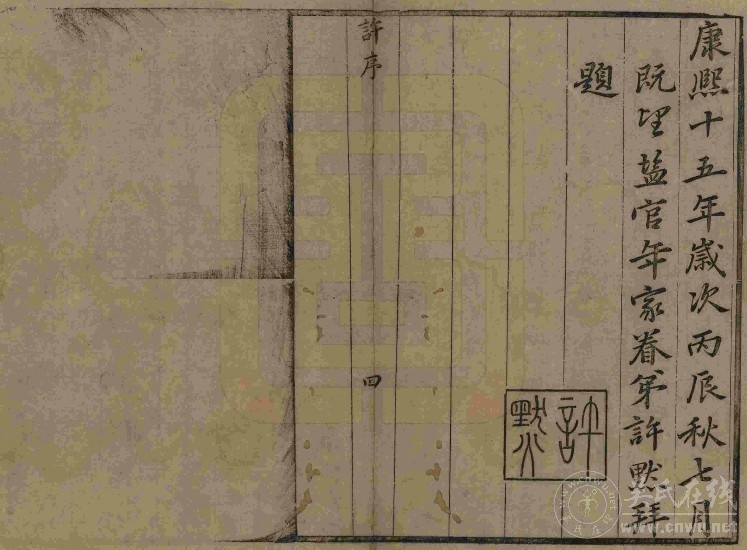 康熙十五年歲次丙辰秋七月
既望塩官年家眷弟許默拜
題
許默
許序
四
吴氏在线